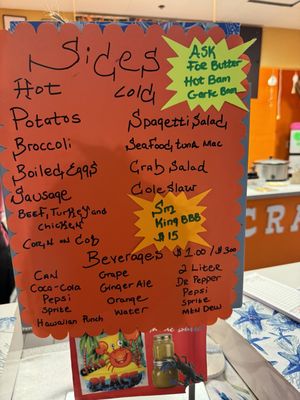 Sides
ASK
For Butter
Hot Bam
Garlic Bam
Hot
Cold
Potatos
Spagetti Salad
Broccoli
Seafood, tuna Mac
Boiled, Eggs
Crab Salad
Sausage
Cole Slaw
Beef, Turkey and
Chicken
Corn on Cob
Sm
King BBB
$15
Beverages $1.00/$3.00
Can
Grape
2 Liter
Coco-Cola
Ginger Ale
Dr Pepper
Pepsi
Orange
Pepsi
Sprite
Water
Sprite
Hawaiian Punch
Mtn Dew
CRA